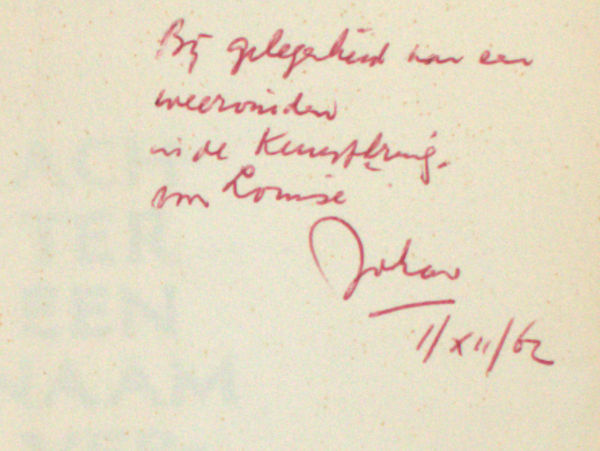 Bij gelegenheid van een
weervinden
in de Kunstkring.
van Louise
Johan
11/XII/62
ACH
TER
EEN
NAAM
VER-